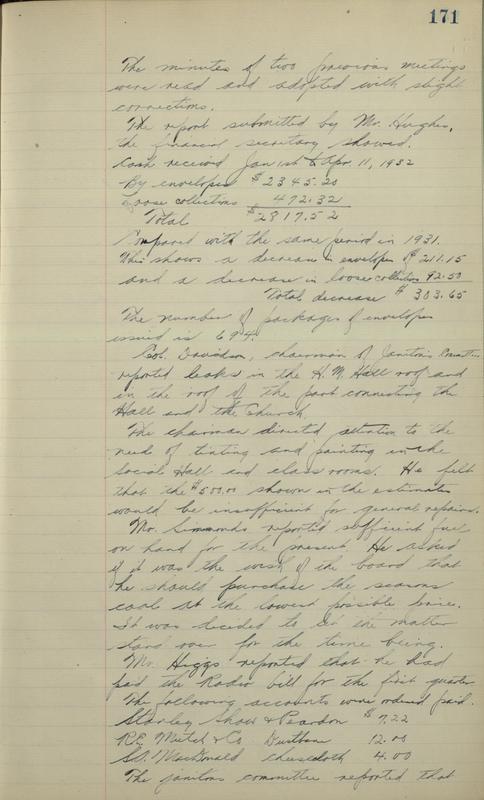 171
The minutes of two previous meetings
were read and adopted with slight
corrections.
The report submitted by Mr. Hughes,
the financial secretary showed.
Cash received Jan 1st to Apr. 11, 1932
By envelopes $2345.20
Loose collections 472.32
Total $2817.52
Compared with the same period in 1931.
This shows a decrease in envelopes of $211.15
and a decrease in loose collections 92.50
Total decrease $303.65
The number of packages of envelopes
issued is 694.
Col. Davidson, chairman of Janitor's Committee
reported leaks in the H.M. Hall roof and
in the roof of the part connecting the
Hall and the Church.
The chairman directed attention to the
need of tinting and painting in the
Social Hall and class rooms. He felt
that the $500.00 shown in the estimates
would be insufficient for general repairs.
Mr. Simmonds reported sufficient fuel
on hand for the present. He asked
if it was the wish of the board that
he should purchase the seasons
coal at the lowest possible price.
It was decided to let the matter
stand over for the time being.
Mr. Higgs reported that he had
paid the Radio bill for the first quarter.
The following accounts were ordered paid.
Stanley Shaw & Peardon $7.22
R.E. Mitchell & Co. 12.00
MacDonald cheesecloth 4.00
The janitors committee reported that